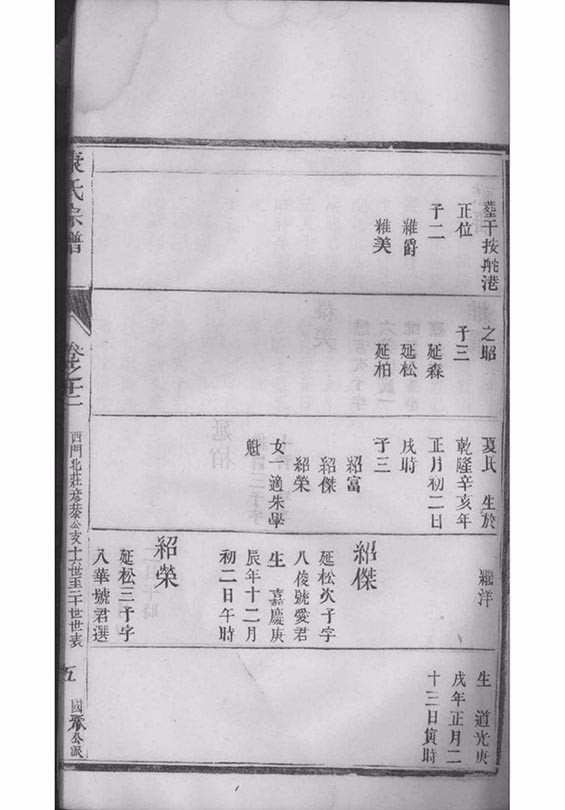 塟于按舵港
正位
子二
維爵
維美
之昭
子三
延森
延松
延柏
夏氏 生於
乾隆辛亥年
正月初二日
戌時
子三
紹富
紹傑
紹榮
女一適朱學
魁
洋
紹傑
延松次子字
八俊號愛君
生 嘉慶庚
辰年十二月
初二日午時
紹榮
延松三子字
八華號君選
生 道光庚
戌年正月二
十三日寅時
康氏宗譜
卷之
西門北莊彥泰公支十一世至二十世世表
五
國承公派